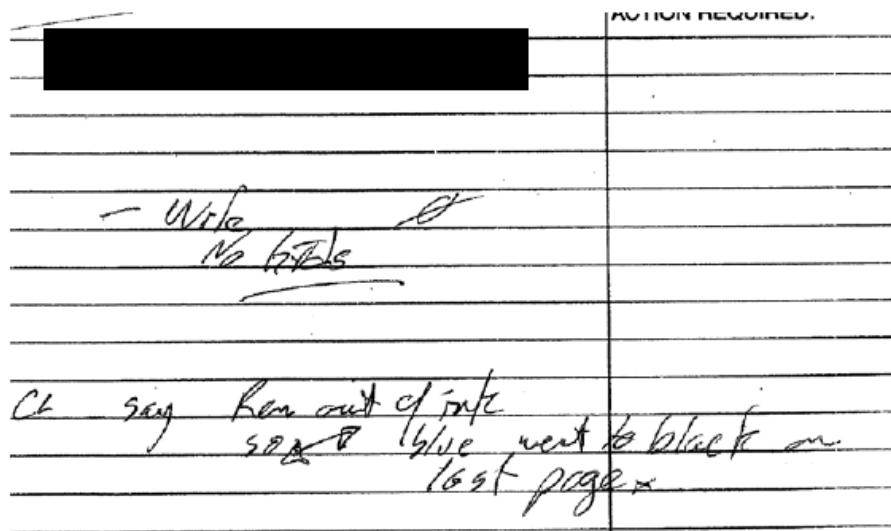 ACTION REQUIRED:
- Wife
No
CL say Ran out of ink
so blue went to black on
last page